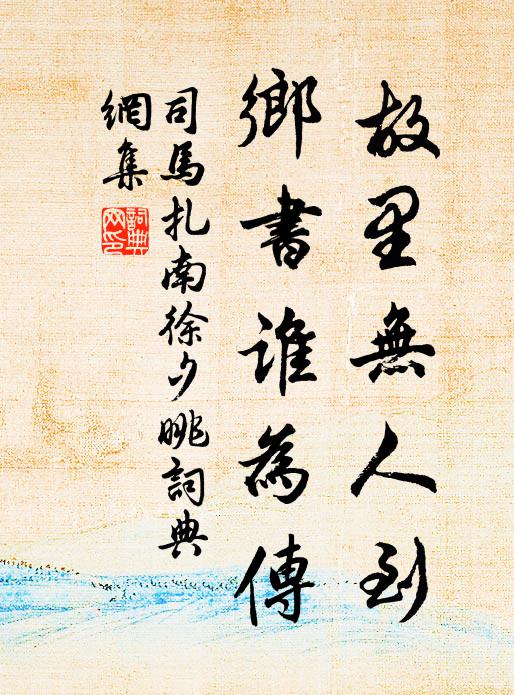 故里無人到
鄉書誰為傳
司馬扎南徐夕眺詞典
網集
詞典網印